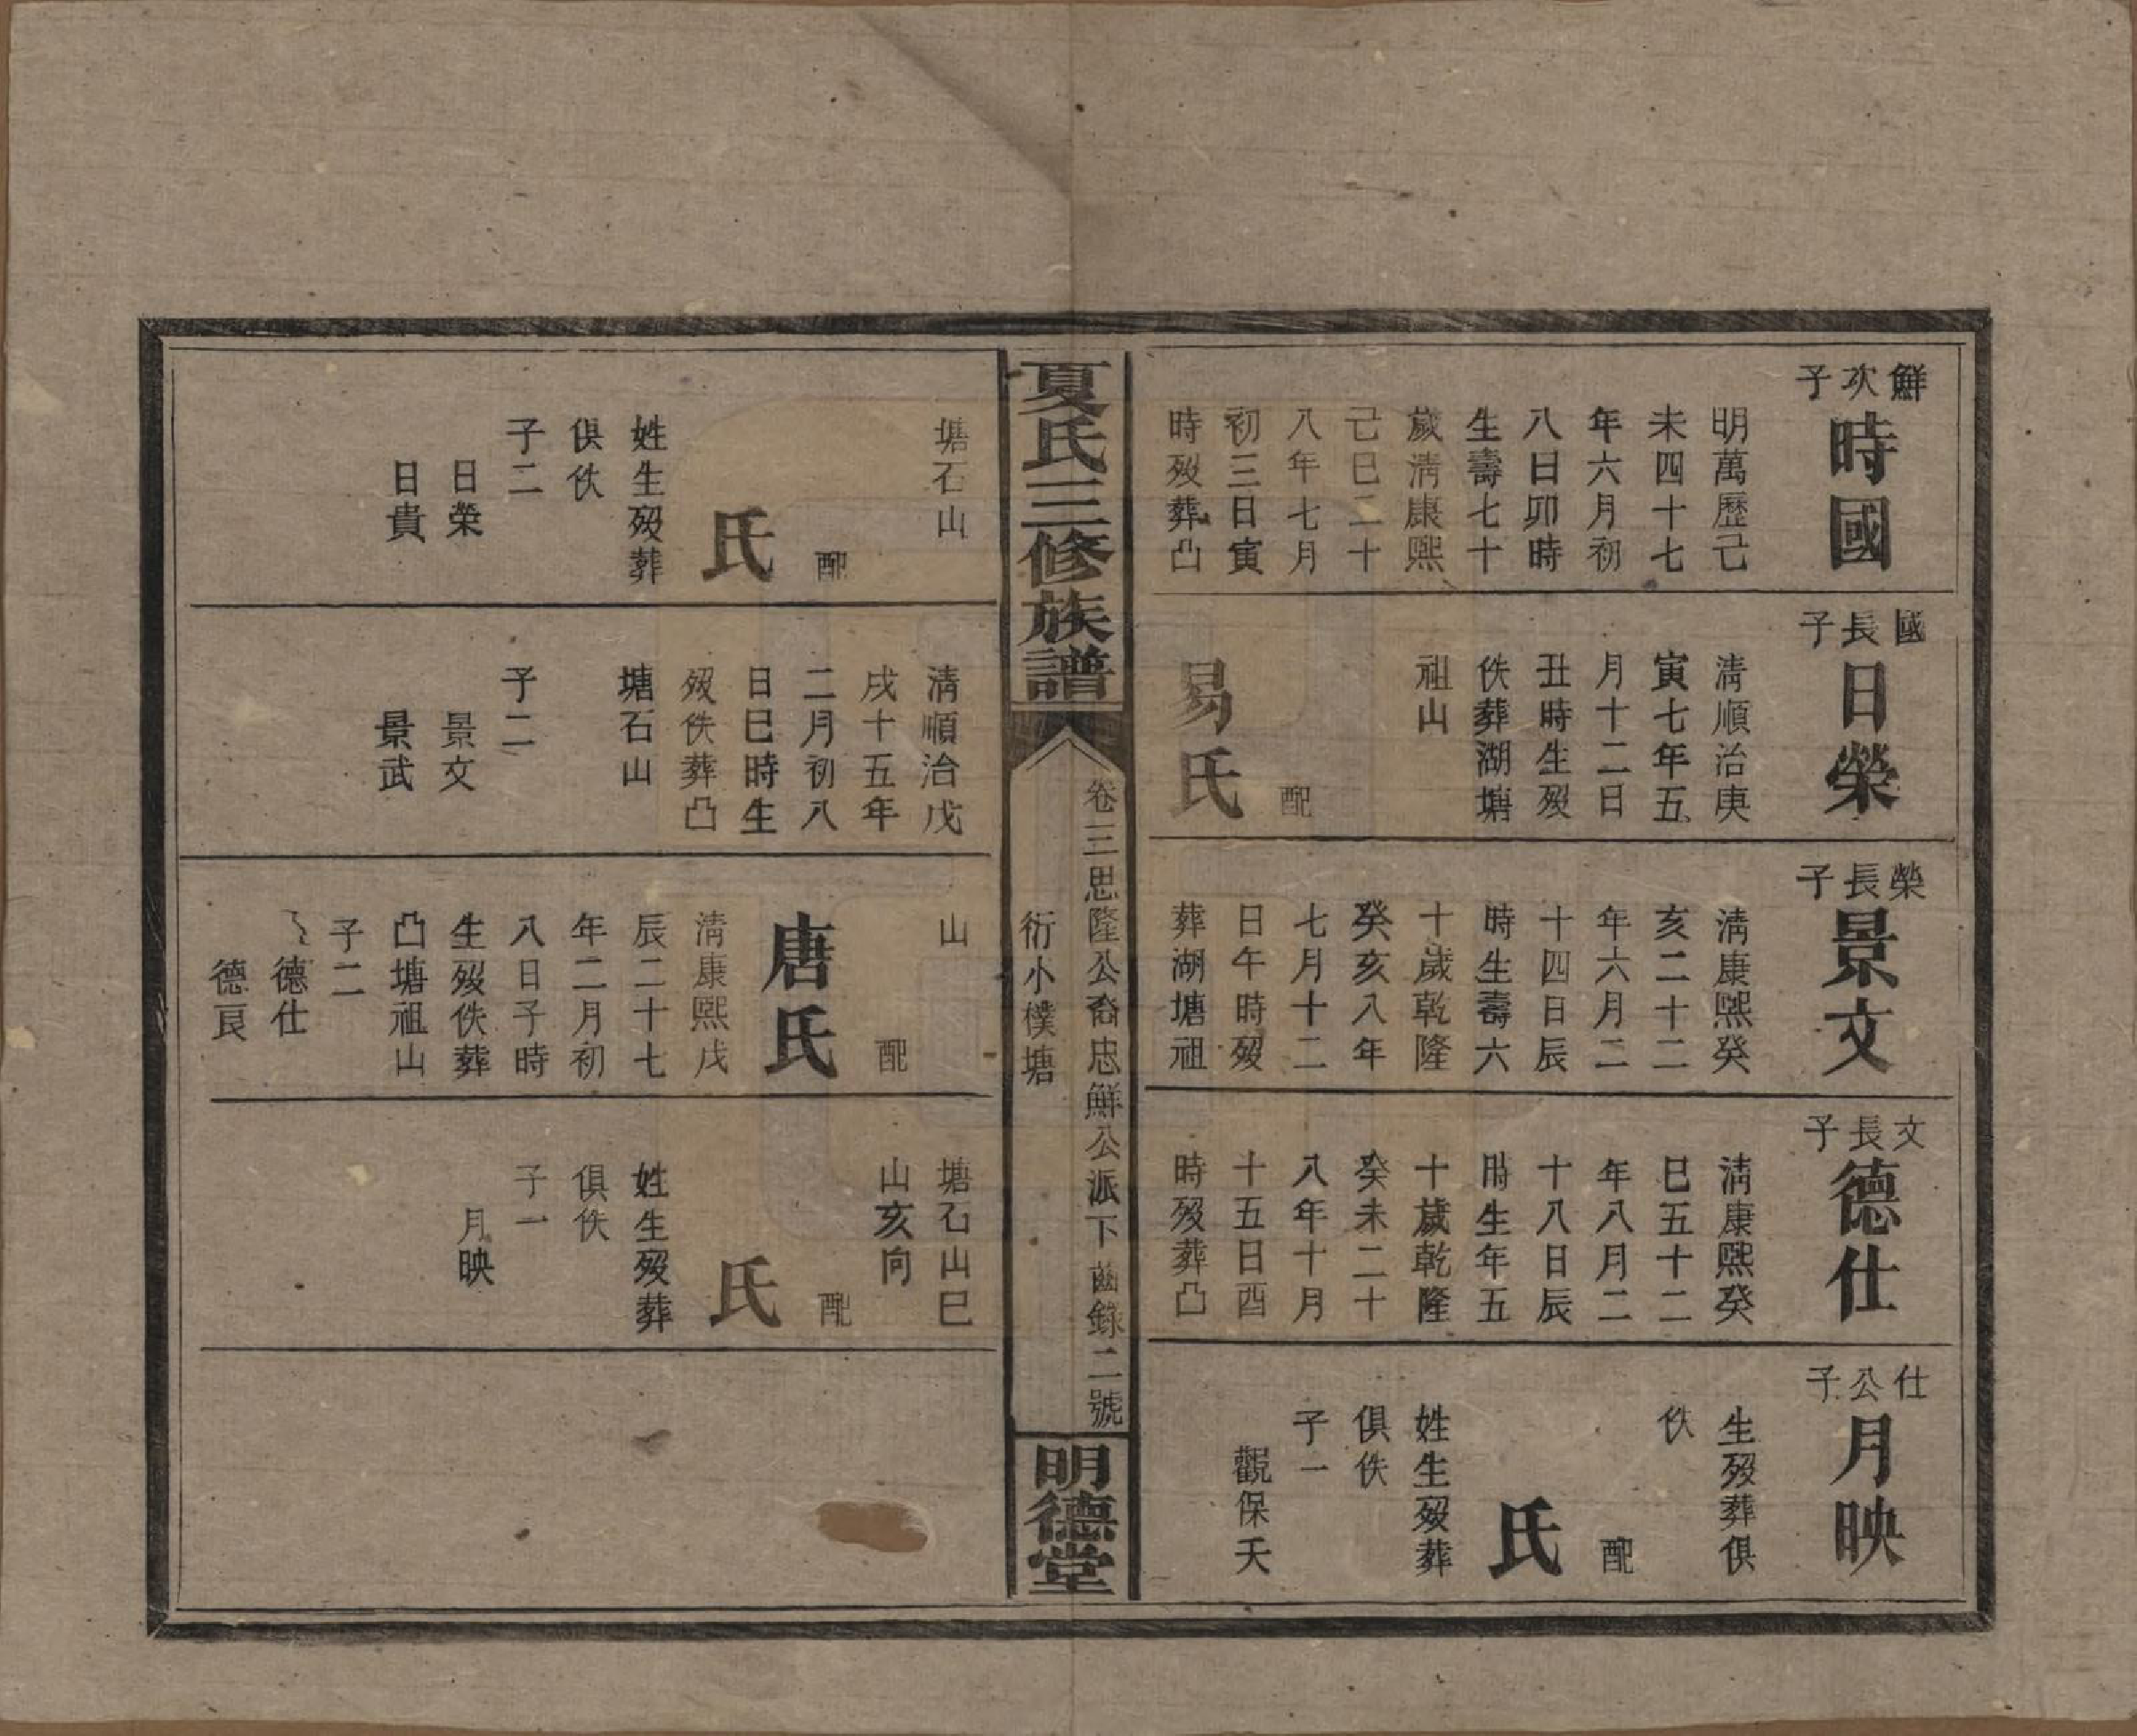 鮮次子
時國
明萬歷己
未四十七
年六月初
八日卯時
生壽七十
歲清康熙
己巳二十
八年七月
初三日寅
時歿葬凸
塘石山
配
氏
姓生歿葬
俱佚
子二
日榮
日貴
國長子
日榮
清順治庚
寅七年五
月十二日
丑時生歿
佚葬湖塘
祖山
配
易氏
清順治戊
戌十五年
二月初八
日巳時生
歿佚葬凸
塘石山
子二
景文
景武
榮長子
景文
清康熙癸
亥二十二
年六月二
十四日辰
時生壽六
十歲乾隆
癸亥八年
七月十二
日午時歿
葬湖塘祖
山
配
唐氏
清康熙戊
辰二十七
年二月初
八日子時
生歿佚葬
凸塘祖山
子二
德仕
德良
文長子
德仕
清康熙癸
巳五十二
年八月二
十八日辰
時生年五
十歲乾隆
癸未二十
八年十月
十五日酉
時歿葬凸
塘石山巳
山亥向
配
氏
姓生歿葬
俱佚
子一
月映
仕公子
月映
生歿葬俱
佚
配
氏
姓生歿葬
俱佚
子一
觀保夭
夏氏三修族譜
卷三思隆公裔忠鮮公派下 齒錄二號
衍小樸塘
明德堂